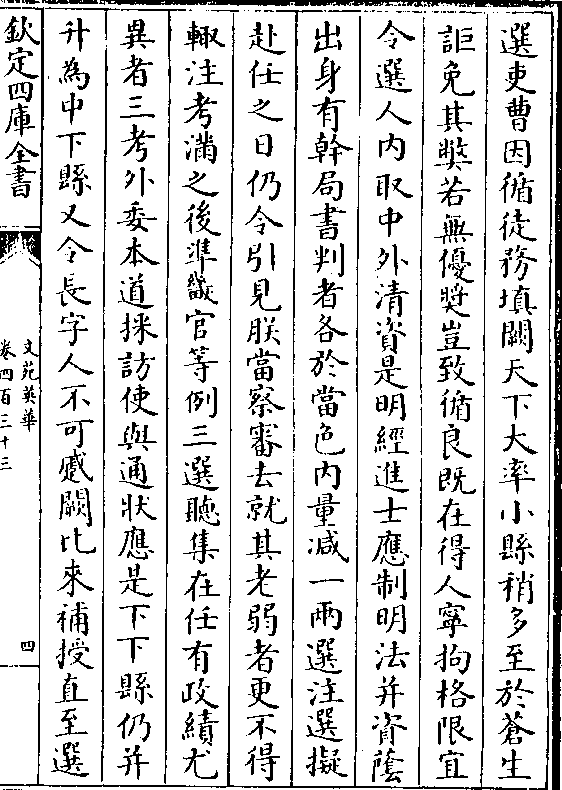 選吏曹因循徒務填闕天下大率小縣稍多至於蒼生
詎免其獘若無優奨豈致循良既在得人寧拘格限宜
令選人内取中外清資是明經進士應制明法并資蔭
出身有幹局書判者各於當色内量減一兩選注選擬
赴任之日仍令引見朕當察審去就其老弱者更不得
輙注考滿之後準畿官等例三選聽集在任有政績尤
異者三考外委本道採訪使與通狀應是下下縣仍并
升為中下縣又令長字人不可蹔闕比來補授直至選
欽定四庫全書
文苑英華
卷四百三十三
四